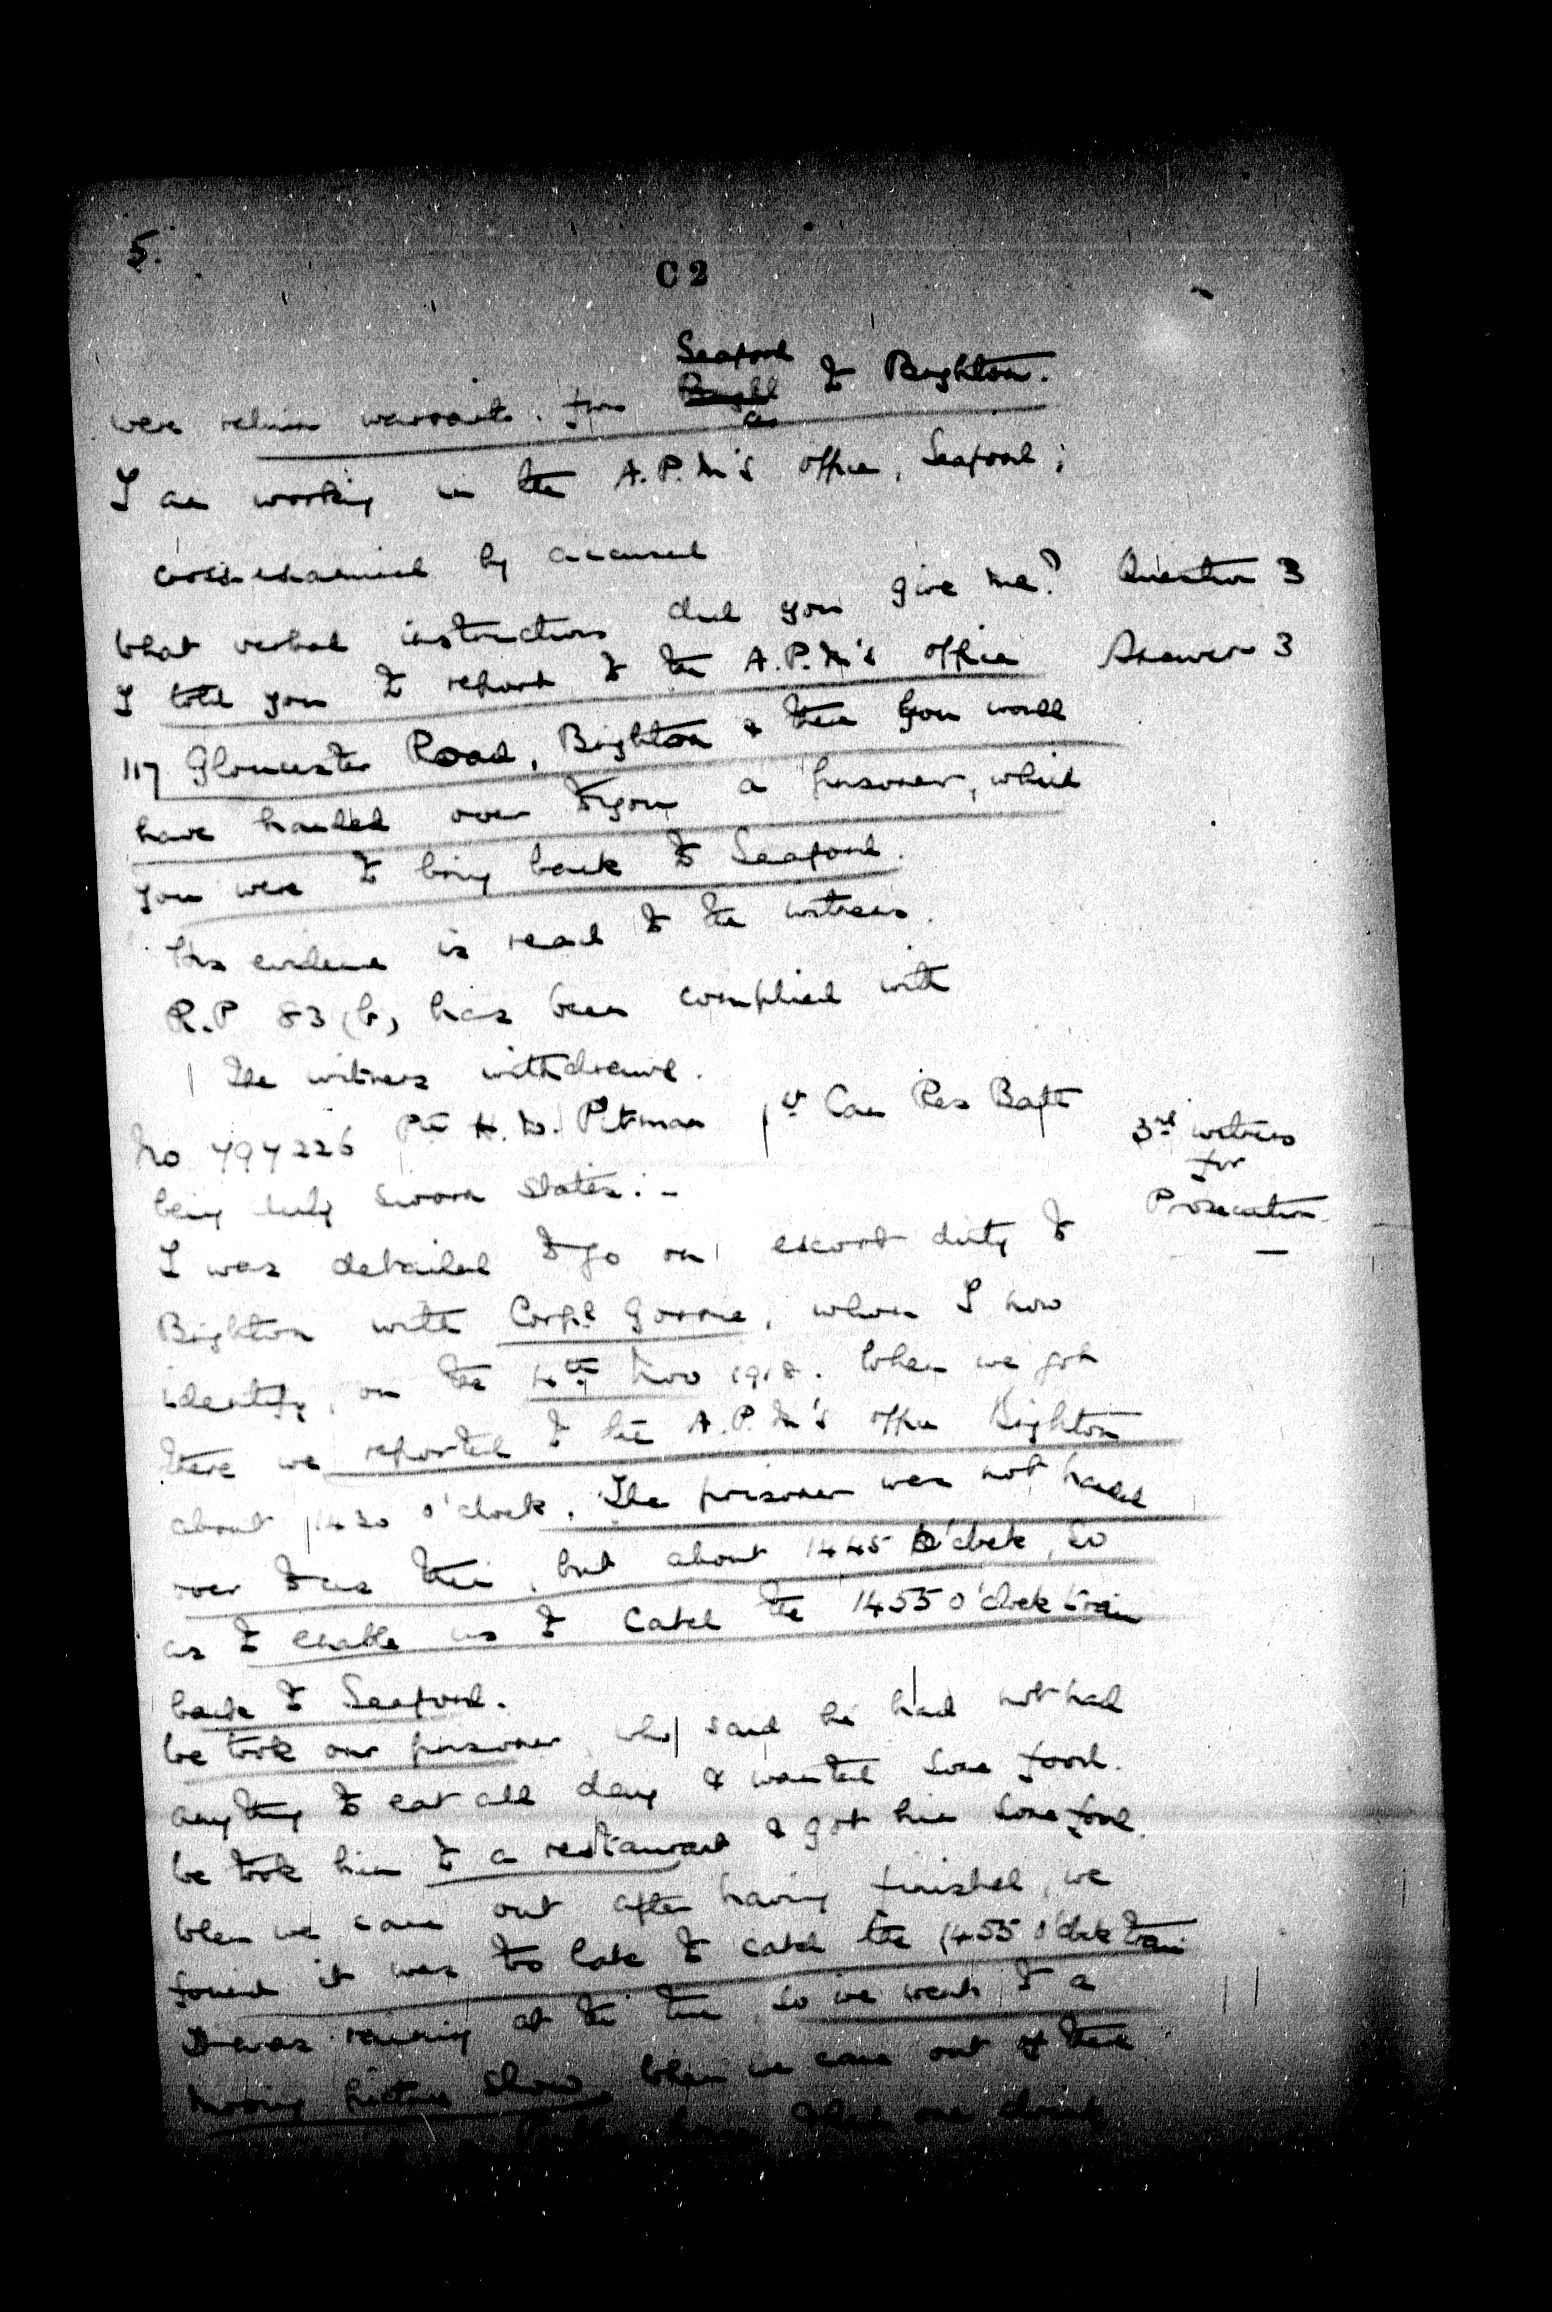 5.
C 2
Seaford
were return warrants. from to Brighton.
I am working in the A.P.M's office, Seaford;
cross-examined by accused
What verbal instructions did you give me? Question 3
I told you to report to the A.P.M's office Answer 3
117 Gloucester Road, Brighton & there you would
have handed over to you a prisoner, which
you were to bring back to Seaford.
His evidence is read to the witness.
R.P 83 (b) has been complied with
The witness withdraws.
No 797226 Pte H. W. Pitman 1st Can Res Batt
3rd witness
for
Prosecution
being duly sworn states:-
I was detailed to go on escort duty to
Brighton with Corpl Gorrie, whom I now
identify, on the Nov 1918. When we got
there we reported to the A.P.M's office Brighton
about 1430 o'clock. The prisoner was not handed
over to us then, but about 1445 o'clock, so
as to enable us to catch the 1455 o'clock train
back to Seaford.
We took our prisoner who said he had not had
anything to eat all day & wanted some food.
We took him to a restaurant & got him some food.
When we came out after having finished, we
found it was too late to catch the 1455 o'clock train
It was raining at the time so we went to a
moving picture show. When we came out of there
one drink